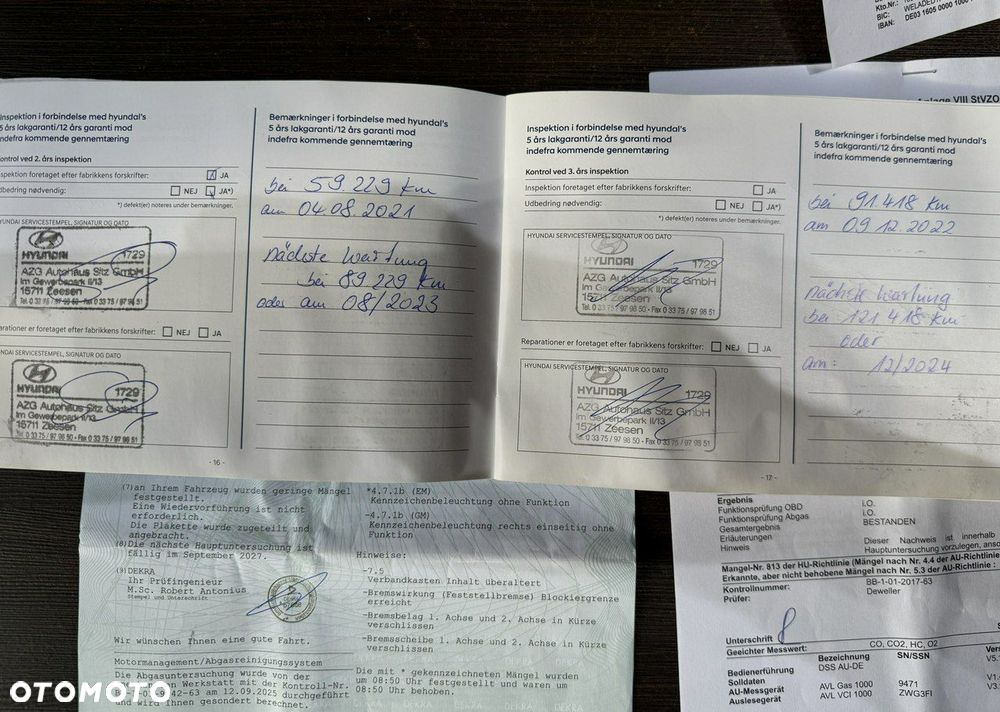 Kto.Nr.:
BIC:
IBAN: DE03 1605 0000 1000
Anlage VIII StVZO
5 års lakgaranti/12 års garanti mod
indefra kommende gennemtæring
Kontrol ved 2. års inspektion
Inspektion foretaget efter fabrikkens forskrifter: JA
Udbedring nødvendig: NEJ JA*)
*) defekt(er) noteres under bemærkninger.
HYUNDAI SERVICESTEMPEL, SIGNATUR OG DATO
HYUNDAI 1729
AZG Autohaus Sitz GmbH
Im Gewerbepark II/13
15711 Zeesen
Tel. 0 33 75 / 97 98 50 - Fax 0 33 75 / 97 98 51
Reparationer er foretaget efter fabrikkens forskrifter: NEJ JA
HYUNDAI SERVICESTEMPEL, SIGNATUR OG DATO
HYUNDAI 1729
AZG Autohaus Sitz GmbH
Im Gewerbepark II/13
15711 Zeesen
Tel. 0 33 75 / 97 98 50 - Fax 0 33 75 / 97 98 51
- 16 -
Bemærkninger i forbindelse med hyundai's
5 års lakgaranti/12 års garanti mod
indefra kommende gennemtæring
bei 59.229 km
am 04.08.2021
nächste Wartung
bei 89.229 km
oder am 08/2023
Inspektion i forbindelse med hyundai's
5 års lakgaranti/12 års garanti mod
indefra kommende gennemtæring
Kontrol ved 3. års inspektion
Inspektion foretaget efter fabrikkens forskrifter: JA
Udbedring nødvendig: NEJ JA*)
*) defekt(er) noteres under bemærkninger.
HYUNDAI SERVICESTEMPEL, SIGNATUR OG DATO
HYUNDAI 1729
AZG Autohaus Sitz GmbH
Im Gewerbepark II/13
15711 Zeesen
Tel. 0 33 75 / 97 98 50 - Fax 0 33 75 / 97 98 51
Reparationer er foretaget efter fabrikkens forskrifter: NEJ JA
HYUNDAI SERVICESTEMPEL, SIGNATUR OG DATO
HYUNDAI 1729
AZG Autohaus Sitz GmbH
Im Gewerbepark II/13
15711 Zeesen
Tel. 0 33 75 / 97 98 50 - Fax 0 33 75 / 97 98 51
- 17 -
Bemærkninger i forbindelse med hyundai's
5 års lakgaranti/12 års garanti mod
indefra kommende gennemtæring
bei 91418 km
am 09.12.2022
nächste Wartung
bei 121 418 km
oder
am: 12/2024
(7) an Ihrem Fahrzeug wurden geringe Mängel
festgestellt.
Eine Wiedervorführung ist nicht
erforderlich.
Die Plakette wurde zugeteilt und
angebracht.
(8) Die nächste Hauptuntersuchung ist
fällig im September 2027.
(9) DEKRA
Ihr Prüfingenieur
M.Sc. Robert Antonius
Stempel und Unterschrift
Wir wünschen Ihnen eine gute Fahrt.
Motormanagement/Abgasreinigungssystem
Die Abgasuntersuchung wurde von der
Werkstatt mit der Kontroll-Nr.
42-63 am 12.09.2025 durchgeführt
und wird Ihnen gesondert berechnet.
*4.7.1b (EM)
Kennzeichenbeleuchtung ohne Funktion
-4.7.1b (GM)
Kennzeichenbeleuchtung rechts einseitig ohne
Funktion
Hinweise:
-7.5
Verbandkasten Inhalt überaltert
-Bremswirkung (Feststellbremse) Blockiergrenze
erreicht
-Bremsbelag 1. Achse und 2. Achse in Kürze
verschlissen
-Bremsscheibe 1. Achse und 2. Achse in Kürze
verschlissen
Die mit * gekennzeichneten Mängel wurden
um 08:50 Uhr festgestellt und waren um
08:50 Uhr behoben.
Ergebnis
Funktionsprüfung OBD I.O.
Funktionsprüfung Abgas I.O.
Gesamtergebnis BESTANDEN
Erläuterungen
Hinweis Dieser Nachweis ist innerhalb
Hauptuntersuchung vorzulegen,
Mangel-Nr. 813 der HU-Richtlinie (Mängel nach Nr. 4.4 der AU-Richtlinie
Erkannte, aber nicht behobene Mängel nach Nr. 5.3 der AU-Richtlinie :
Kontrollnummer: BB-1-01-2017-63
Prüfer: Deweller
Unterschrift
Geeichter Messwert: CO, CO2, HC, O2
Bezeichnung SN/SSN
Bedienerführung DSS AU-DE
Solldaten
AU-Messgerät AVL Gas 1000 9471
Auslesegerät AVL VCI 1000 ZWG3FI
OTOMOTO